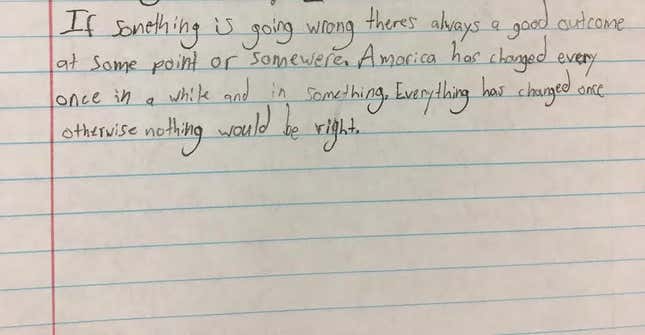 If something is going wrong theres always a good outcome
at some point or somewere. Amarica has changed every
once in a while and in something. Everything has changed once
otherwise nothing would be right.